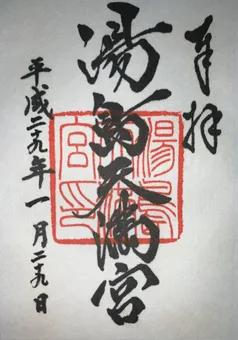 奉拝
湯島天満宮
平成二十九年一月二十九日